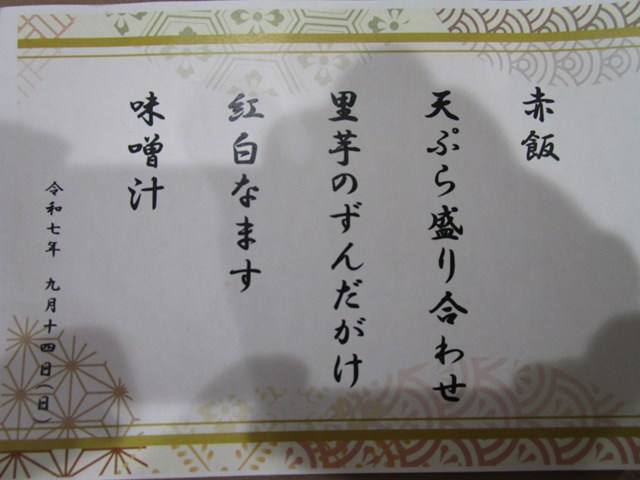 赤飯
天ぷら盛り合わせ
里芋のずんだがけ
紅白なます
味噌汁
令和七年 九月十四日(日)